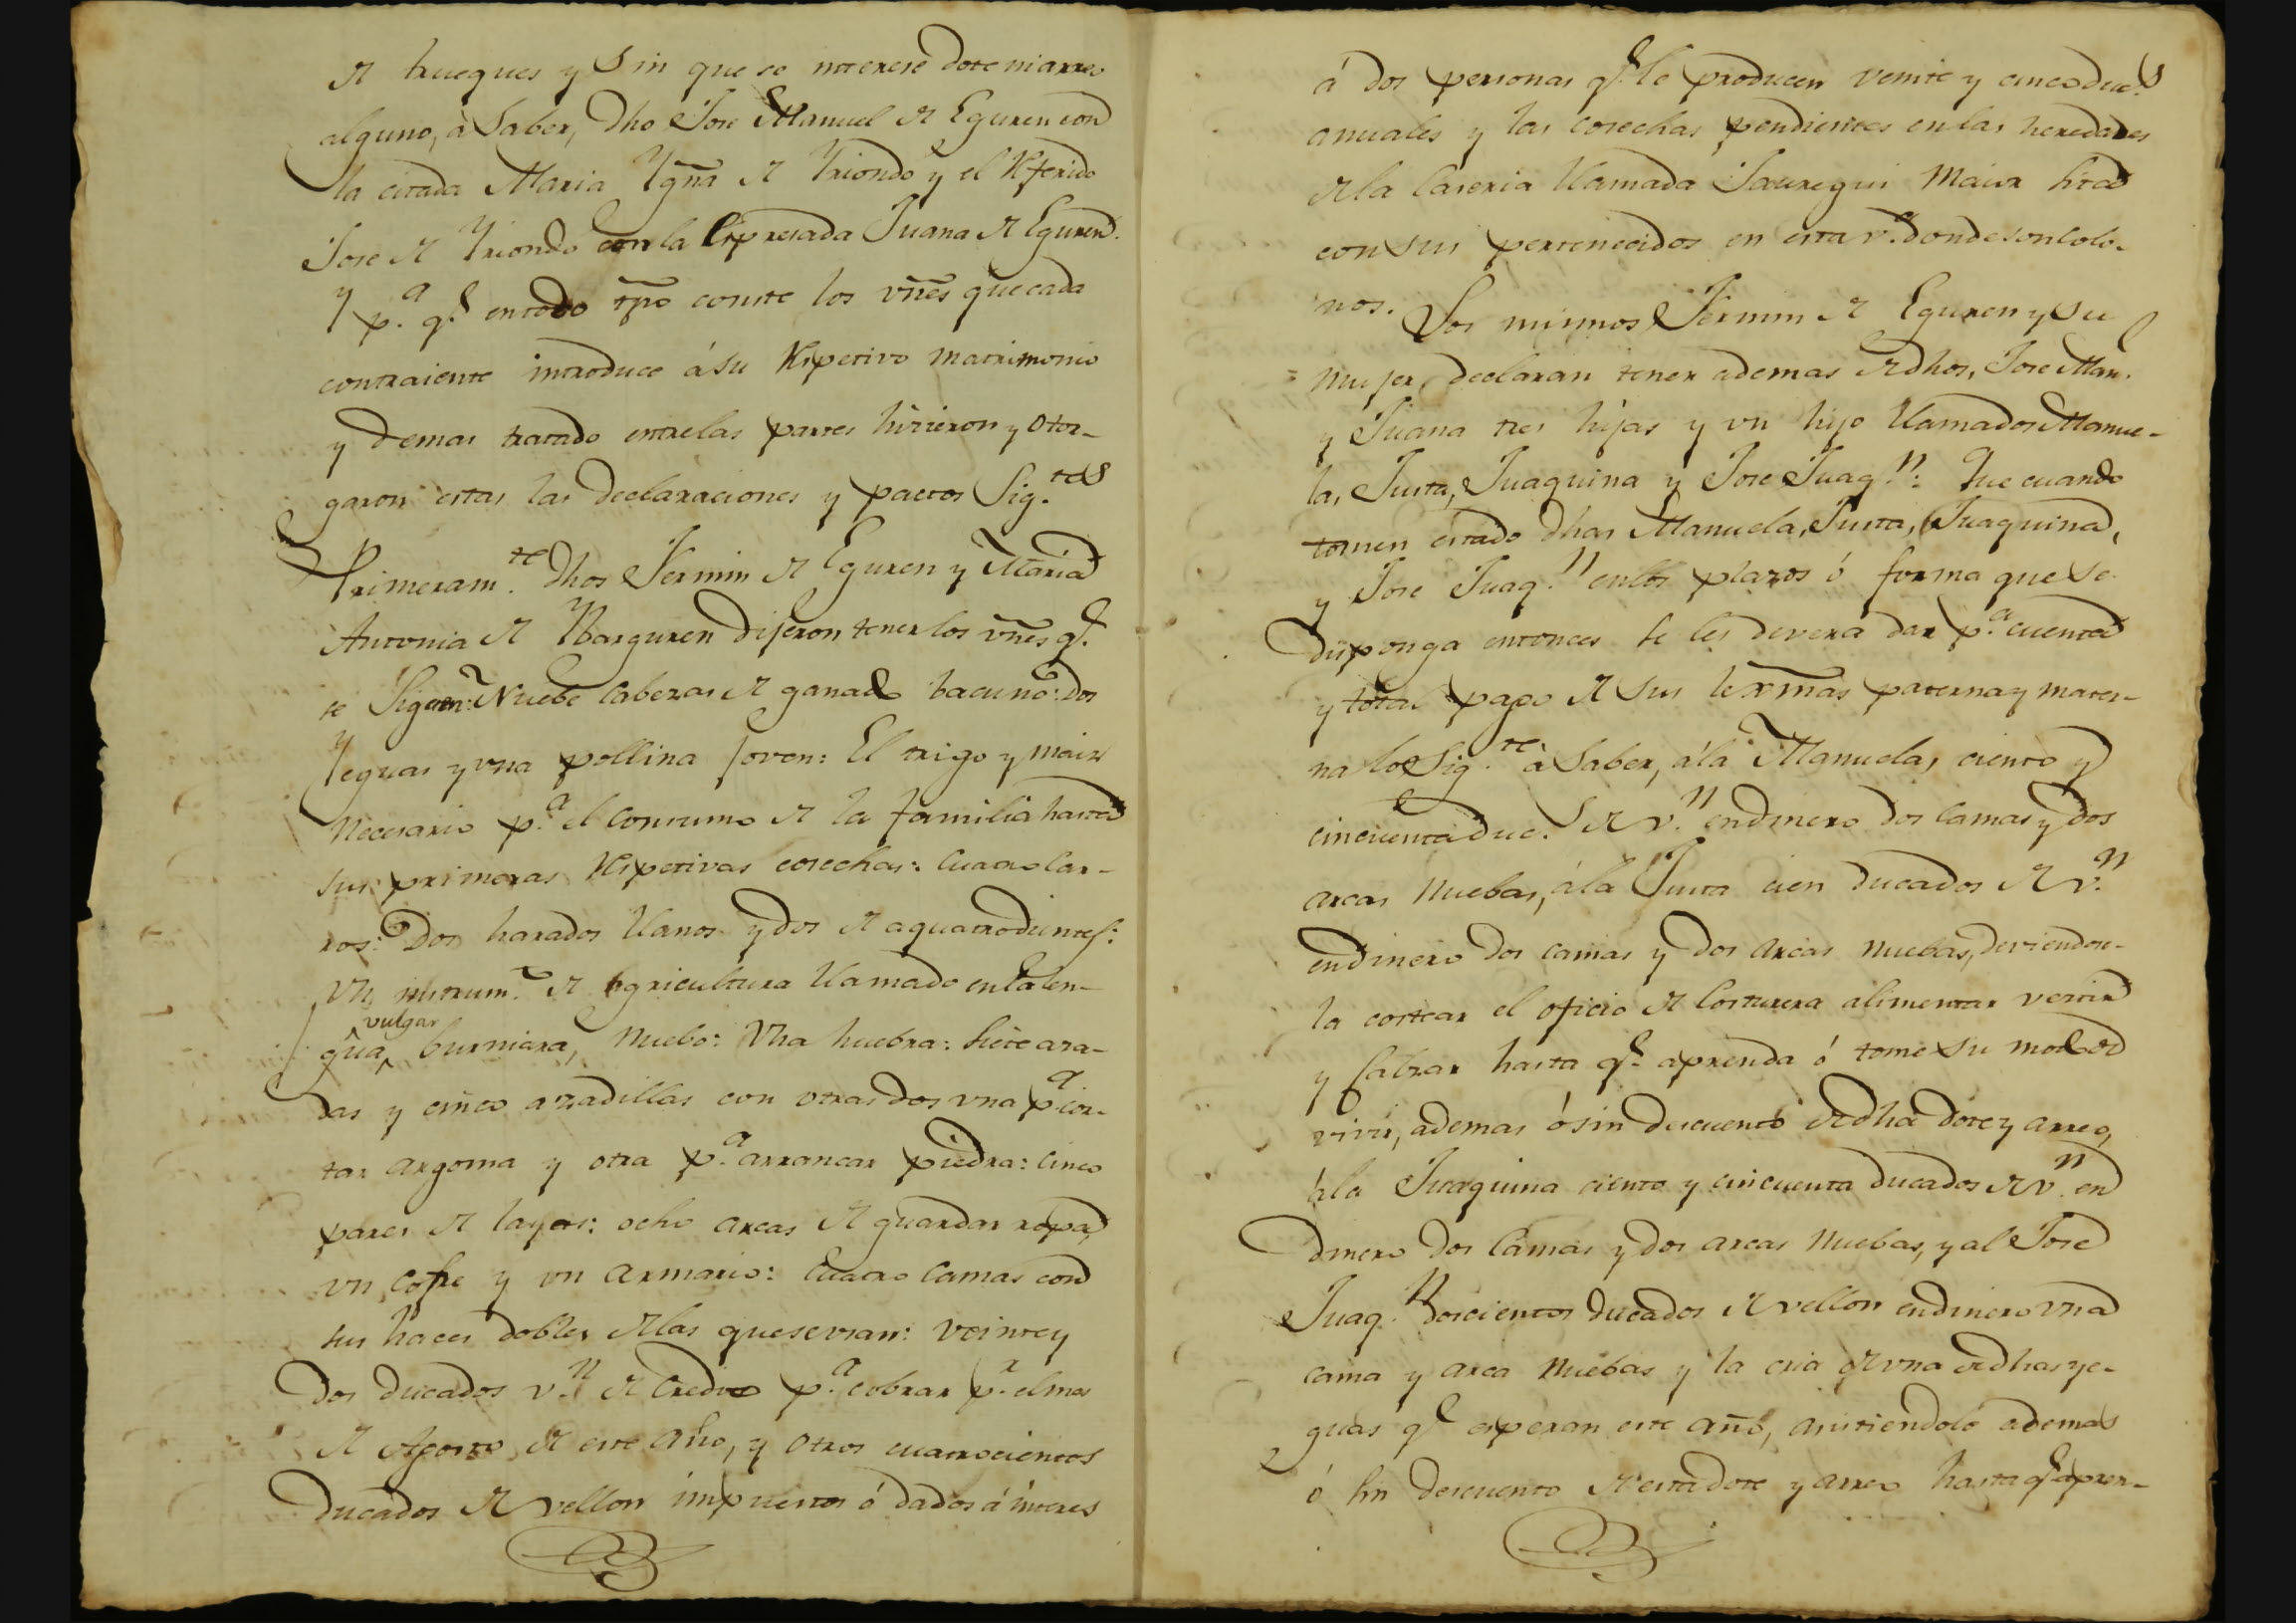 de trueques y sin que se interese dote ni arreo
alguno, à Saber, dho Jose Manuel de Eguren con
la citada Maria Ygña de Yriondo y el referido
Jose de Yriondo con la Expresada Juana de Eguren.
y p.ª q.e en todo tpõ conste los vñes que cada
contraiente introduce á su respetivo matrimonio
y demas tratado entre las partes hicieron y otor-
garon estas las declaraciones y pactos Sig.tes
Primeram.te dhos Fermin de Eguren y Maria
Antonia de Ybarguren dijeron tener los vñes q.e
se Siguen: Nuebe Cabezas de ganado bacuno: dos
Yeguas y vna pollina joven: El trigo y maiz
necesario p.ª el Consumo de la familia hasta
sus primeras respetivas cosechas: Cuatro Car-
ros: Dos harados llanos y dos de a quatro dientes:
Vn instrum.to de agricultura llamado en la len-
vulgar
gua, burniara, nuebo: Vna huebra: siete aza-
das y cinco azadillas con otras dos vna p.ª cor-
tar argoma y otra p.ª arrancar piedra: cinco
pares de layas: ocho arcas de guardar ropa,
vn Cofre y vn armario: Cuatro Camas con
sus haces dobles de las que se vsan: veinte y
dos ducados v.n de Credito p.ª cobrar p.r el mes
de Agosto de este año, y otros cuatrocientos
ducados de vellon impuestos ó dados á interes
á dos personas q.e le producen veinte y cinco duc.s
anuales y las cosechas pendientes en las heredades
de la Caseria llamada Jauregui Maior sita
con sus pertenecidos en esta v.ª donde son Colo-
nos. Los mismos Fermin de Eguren y su
mujer declaran tener ademas de dhos, Jose Man.
y Juana tres hijas y vn hijo llamados Manue-
la, Justa, Juaquina y Jose Juaq.n: Que cuando
tomen estado dhas Manuela, Justa, Juaquina,
y Jose Juaq.n en los plazos ó forma que se
disponga entonces se les devera dar p.ª cuenta
y total pago de sus lexmas paterna y mater-
na lo Sig.te à Saber, á la Manuela, ciento y
cincuenta duc.s de v.n en dinero dos camas y dos
arcas nuebas, á la Justa cien ducados de v.n
en dinero dos camas y dos arcas nuebas, deviendose-
la costear el oficio de Costurera alimentar vestir
y Calzar hasta q.e aprenda ó tome su modo de
vivir, ademas ó sin descuento de dha dote y arreo,
á la Juaquina ciento y cincuenta ducados de v.n en
dinero dos Camas y dos arcas nuebas, y al Jose
Juaq.n doscientos ducados de vellon en dinero vna
cama y arca nuebas y la cria de vna de dhas ye-
guas q.e esperan este año, asistiendolo ademas
ó sin descuento de esta dote y arreo hasta q.e apren-